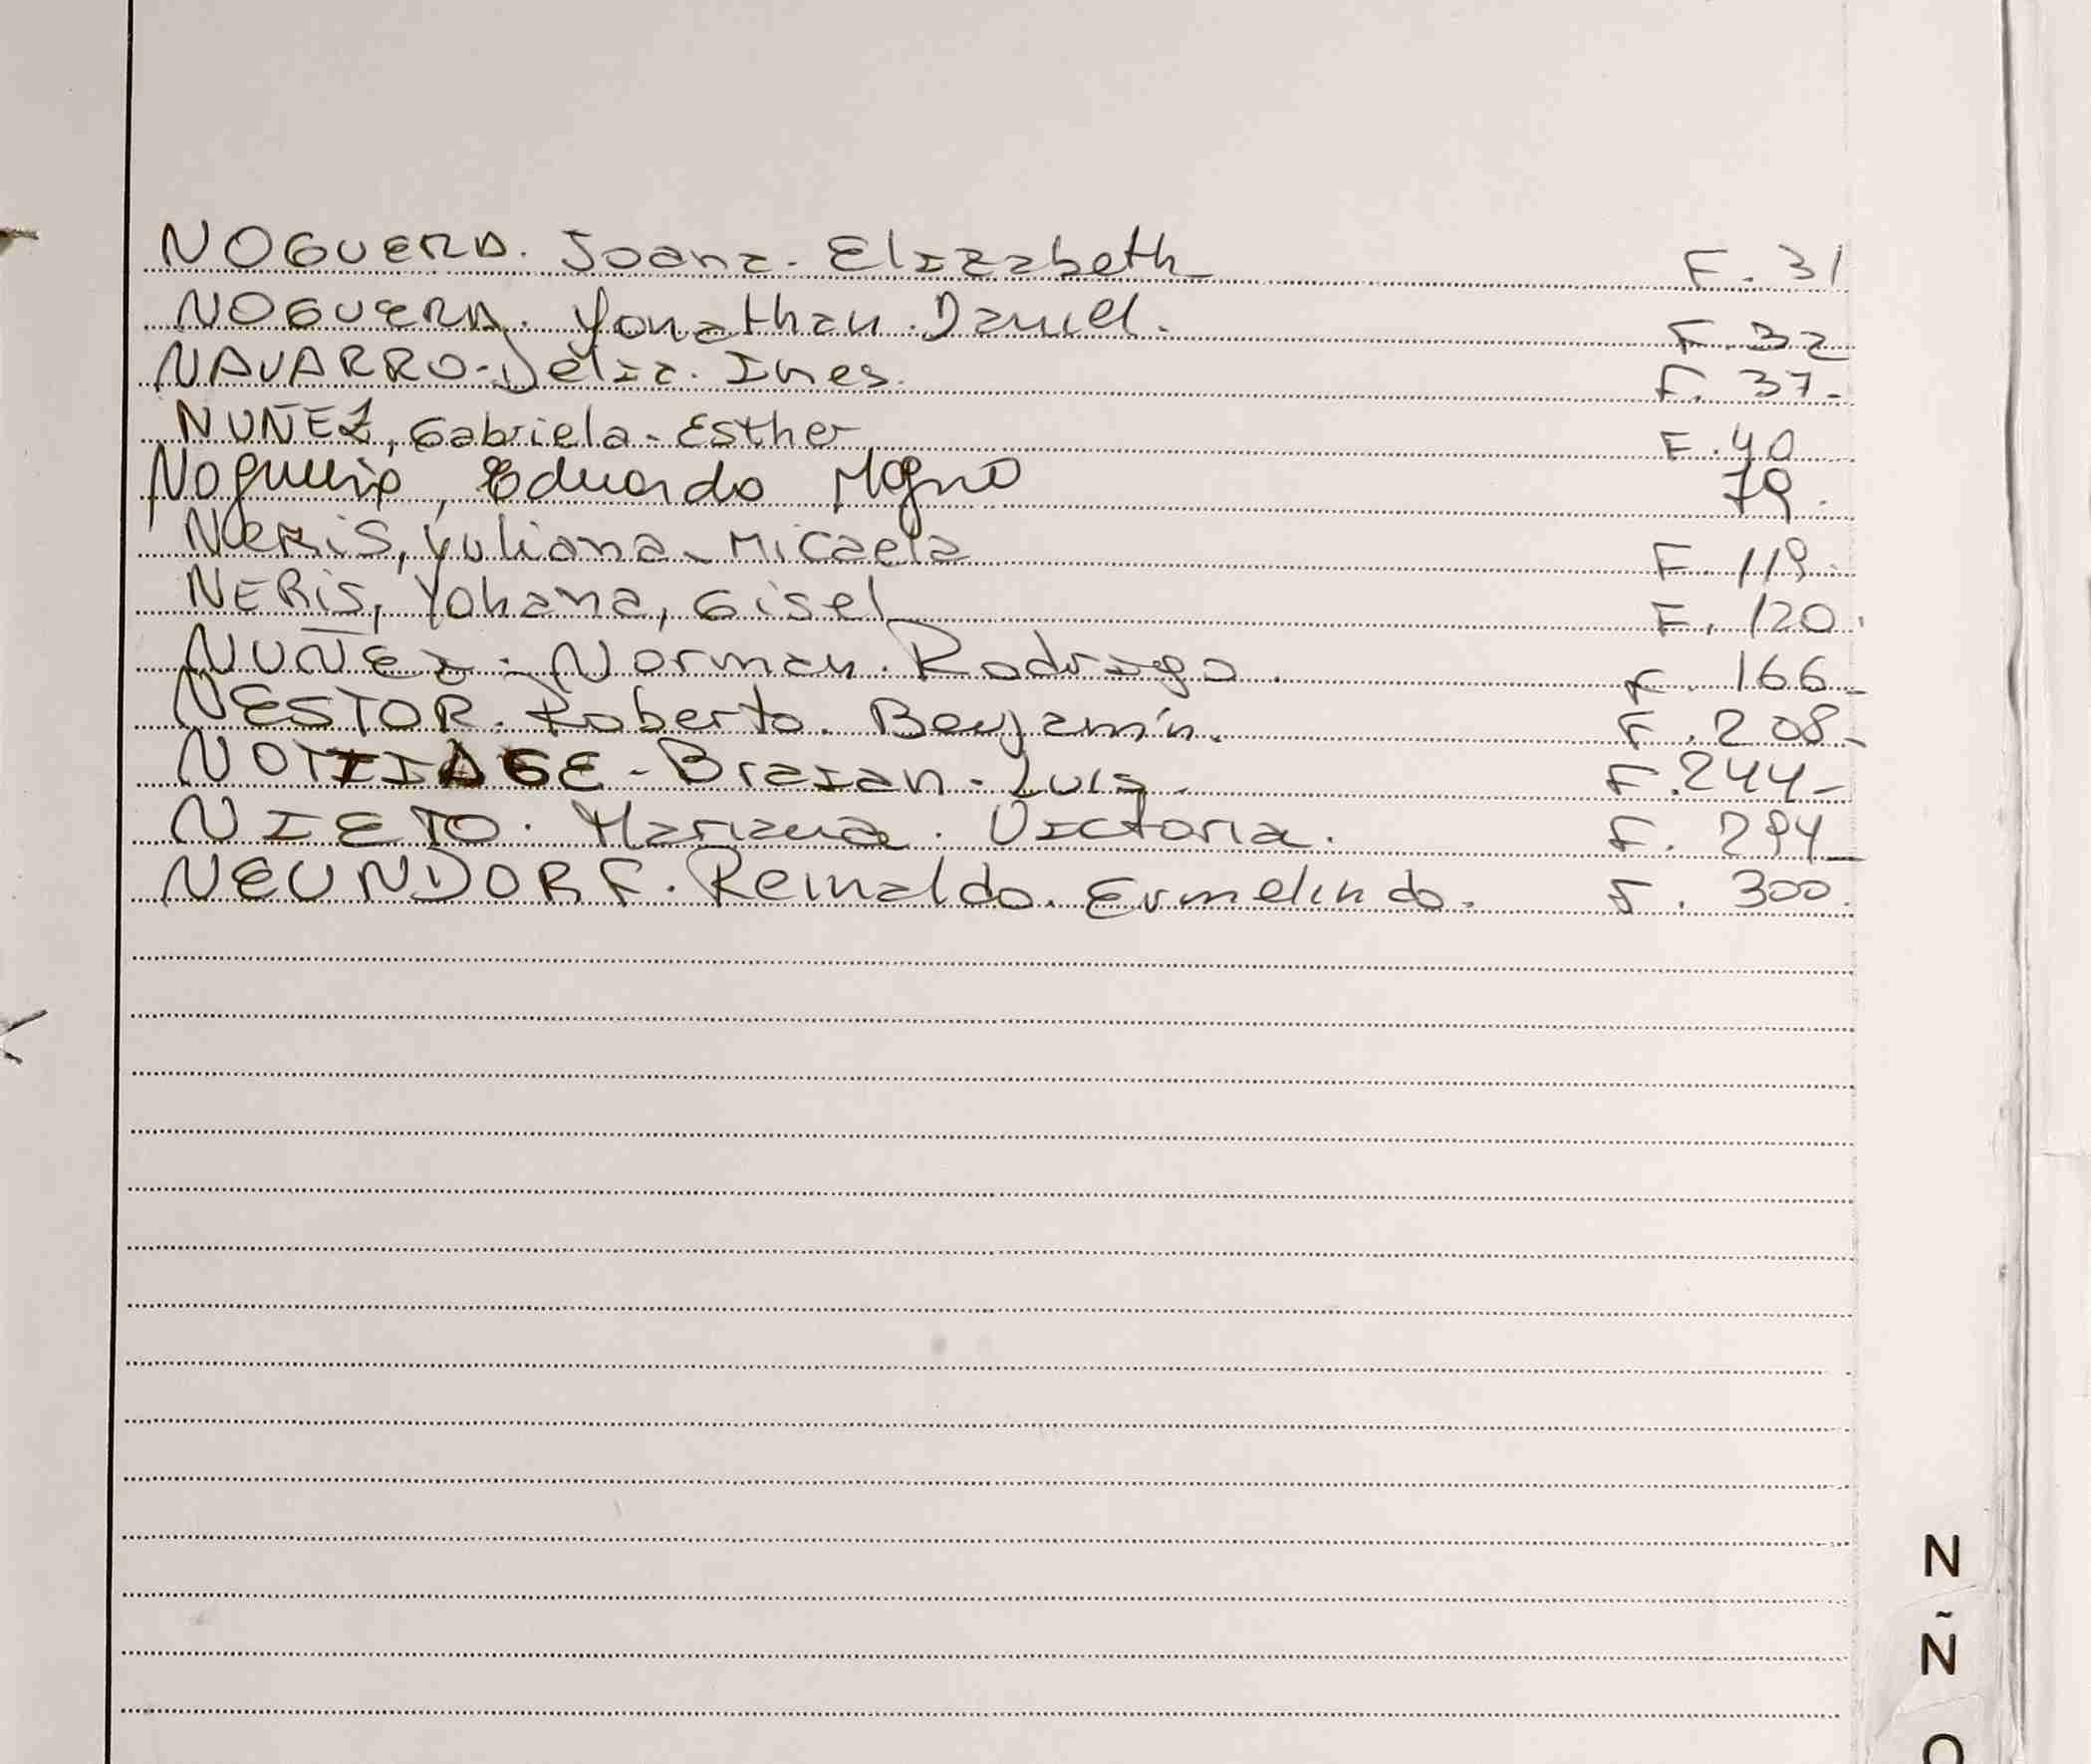 NOGUERA. Joana. Elizabeth F. 31
NOGUERA. Yonathan. Daniel. F. 32
NAVARRO. Delia. Ines. F. 37-
NUÑEZ, Gabriela. Esther F. 40
Eduardo 79.
NERIS, Yuliana. Micaela F. 119.
NERIS, Yohana, Gisel F. 120.
NUÑEZ. Norman. Rodrigo. F. 166-
NESTOR. Roberto. Benjamín. F. 208-
Braian - Luis. F. 244-
NIETO. Mariana. Victoria. F. 294-
NEUNDORF. Reinaldo. Ermelindo. F. 300.
N
Ñ
O